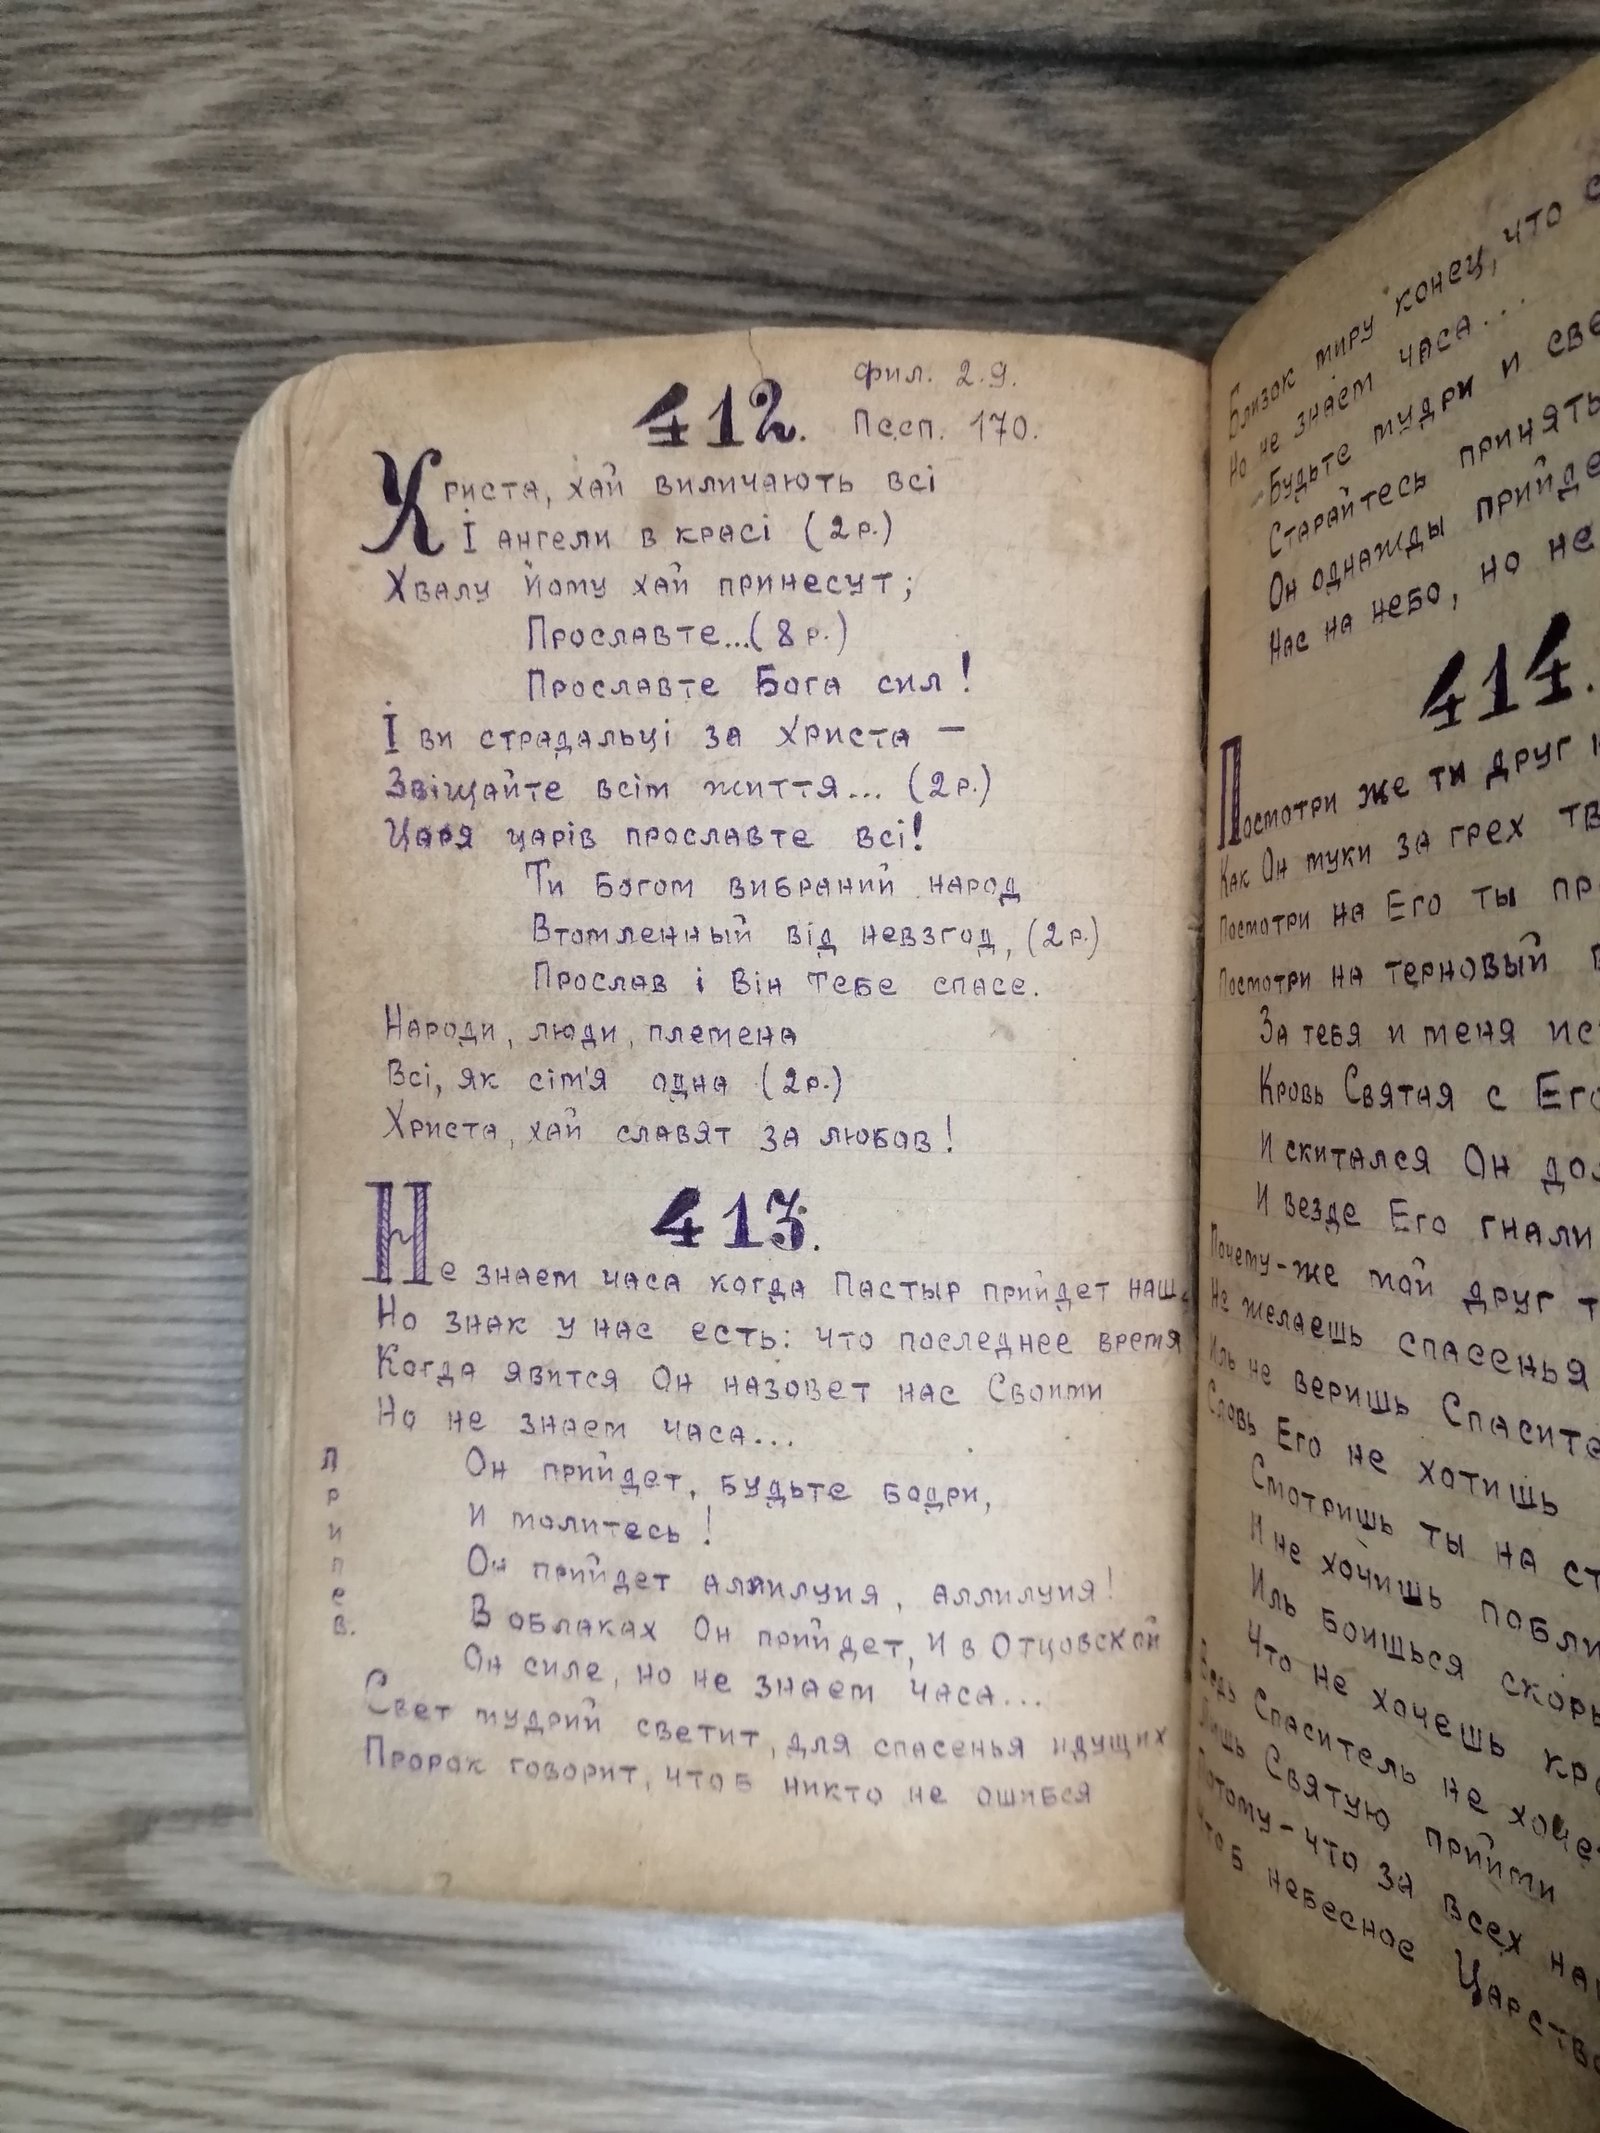 фил. 2.9.
412. Песп. 170.
Христа, хай виличають всі
І ангели в красі (2 р.)
Хвалу Йому хай принесут;
Прославте...(8 р.)
Прославте Бога сил!
І ви страдальці за Христа –
Звіщайте всім життя... (2 р.)
Царя царів прославте всі!
Ти Богом вибраний народ
Втомленный від невзгод, (2 р.)
Прослав і Він тебе спасе.
Народи, люди, племена
Всі, як сім'я одна (2 р.)
Христа, хай славят за любов!
413.
Не знаем часа когда Пастыр прийдет наш,
Но знак у нас есть: что последнее время
Когда явится Он назовет нас Своими
Но не знаем часа...
Припев.
Он прийдет, будьте бодри,
И молитесь!
Он прийдет аллилуия, аллилуия!
В облаках Он прийдет, И в Отцовской
Он силе, но не знаем часа...
Свет мудрий светит, для спасенья идущих
Пророк говорит, чтоб никто не ошибся
Близок миру конец, что
Но не знаем часа...
Будьте мудри и
Старайтесь принять
Он однажды
Нас на небо, но не
414.
Посмотри же ти друг
Как Он муки за грех
Посмотри на Его ты
Посмотри на терновый
За тебя и меня
Кровь Святая с
И скитался Он
И везде Его гнали
Почему-же мой друг
Не желаешь спасенья
Иль не веришь
Словь Его не хотишь
Смотришь ты на
И не хочишь
Иль боишься
Что не хочешь
Ведь Спаситель не
Лишь Святую прийми
Потому-что за всех
Чтоб небесное